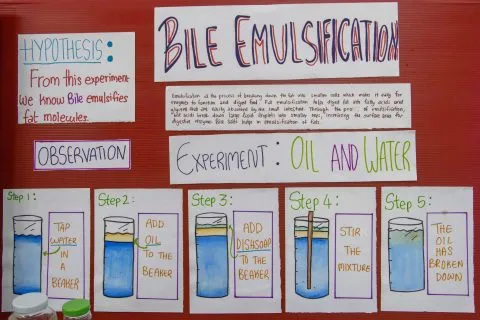 HYPOTHESIS:
From this experiment
we know Bile emulsifies
fat molecules.
BILE EMULSIFICATION
Emulsification is the process of breaking down the fat into smaller cells which makes it easy for
enzymes to function and digest food. Fat emulsification helps digest fat into fatty acids and
glycerol that are easily absorbed by the small intestine. Through the process of emulsification,
bile acids break down large lipid droplets into smaller ones, increasing the surface area for
digestive enzymes. Bile salts helps in emulsification of fats.
OBSERVATION
EXPERIMENT: OIL AND WATER
Step 1:
TAP
WATER
IN A
BEAKER
Step 2:
ADD
OIL
TO THE
BEAKER
Step 3:
ADD
DISHSOAP
TO THE
BEAKER
Step 4:
STIR
THE
MIXTURE
Step 5:
THE
OIL HAS
BROKEN
DOWN